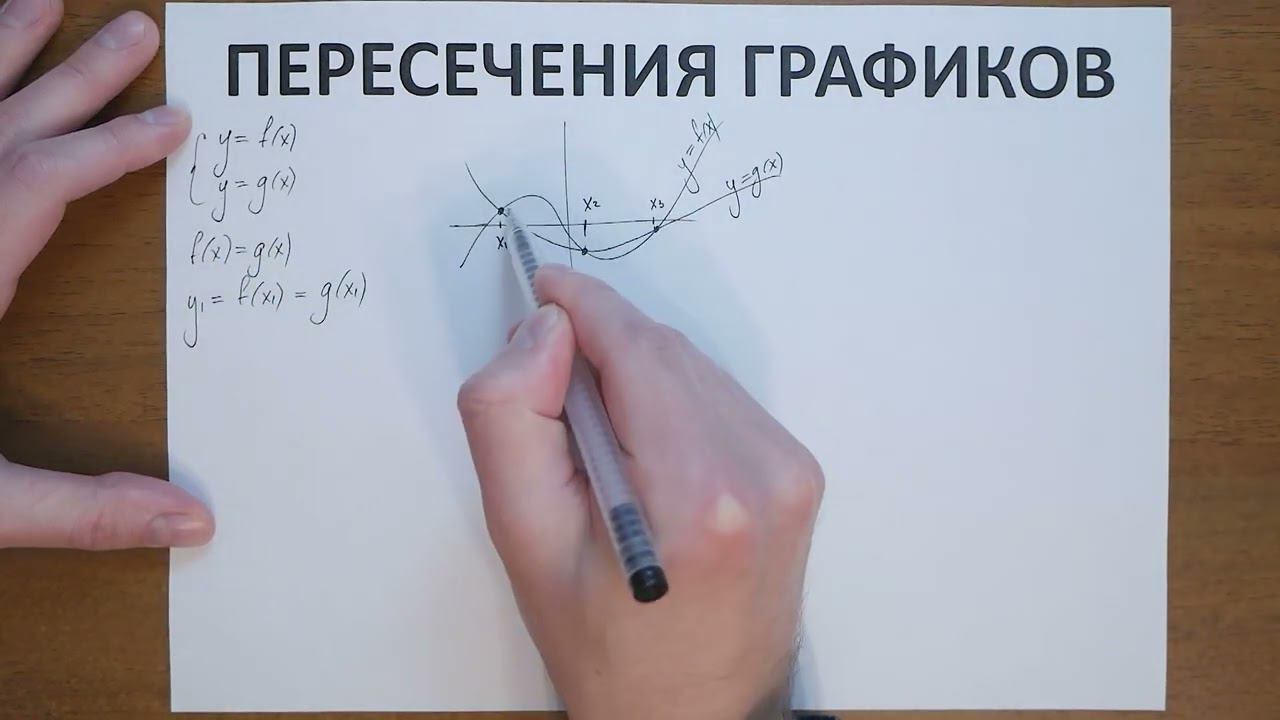 ПЕРЕСЕЧЕНИЯ ГРАФИКОВ
y = f(x)
y = g(x)
f(x) = g(x)
y₁ = f(x₁) = g(x₁)
y = f(x)
y = g(x)
x₂
x₃
x₁